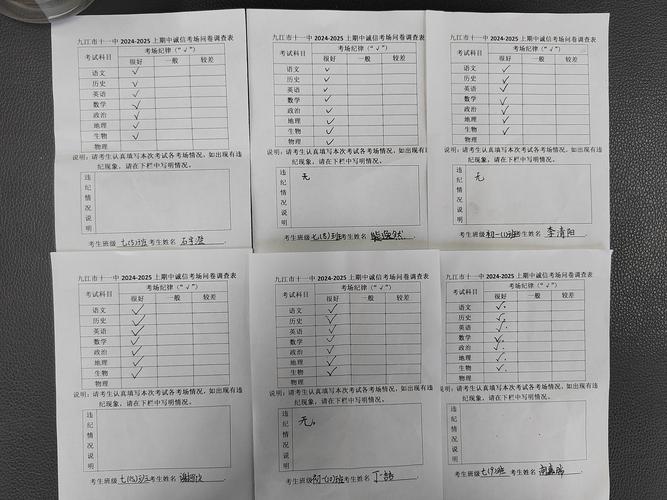 九江市十一中 2024-2025 上期中诚信考场问卷调查表
考试科目
考场纪律（“√”）
很好 一般 较差
语文 √
历史 √
英语 √
数学 √
政治 √
地理 √
生物 √
物理
说明：请考生认真填写本次考试各考场情况，如出现有违
纪现象，请在下栏中写明情况。
违纪情况说明
考生班级 七(5)班 考生姓名
九江市十一中 2024-2025 上期中诚信考场问卷调查表
考试科目
考场纪律（“√”）
很好 一般 较差
语文 √
历史 √
英语 √
数学 √
政治 √
地理 √
生物 √
物理 √
说明：请考生认真填写本次考试各考场情况，如出现有违
纪现象，请在下栏中写明情况。
违纪情况说明
无
考生班级 七(8)班 考生姓名
九江市十一中 2024-2025 上期中诚信考场问卷调查表
考试科目
考场纪律（“√”）
很好 一般 较差
语文 √
历史 √
英语 √
数学 √
政治 √
地理 √
生物 √
物理
说明：请考生认真填写本次考试各考场情况，如出现有违
纪现象，请在下栏中写明情况。
违纪情况说明
无
考生班级 初一(1)班 考生姓名 李清阳
九江市十一中 2024-2025 上期中诚信考场问卷调查表
考试科目
考场纪律（“√”）
很好 一般 较差
语文 √
历史 √
英语 √
数学 √
政治 √
地理 √
生物 √
物理
说明：请考生认真填写本次考试各考场情况，如出现有违
纪现象，请在下栏中写明情况。
违纪情况说明
考生班级 考生姓名
九江市十一中 2024-2025 上期中诚信考场问卷调查表
考试科目
考场纪律（“√”）
很好 一般 较差
语文 √
历史 √
英语 √
数学 √
政治 √
地理 √
生物 √
物理
说明：请考生认真填写本次考试各考场情况，如出现有违
纪现象，请在下栏中写明情况。
违纪情况说明
无。
考生班级 考生姓名
九江市十一中 2024-2025 上期中诚信考场问卷调查表
考试科目
考场纪律（“√”）
很好 一般 较差
语文 √
历史 √
英语 √
数学 √
政治 √
地理 √
生物 √
物理
说明：请考生认真填写本次考试各考场情况，如出现有违
纪现象，请在下栏中写明情况。
违纪情况说明
考生班级 七(9)班 考生姓名